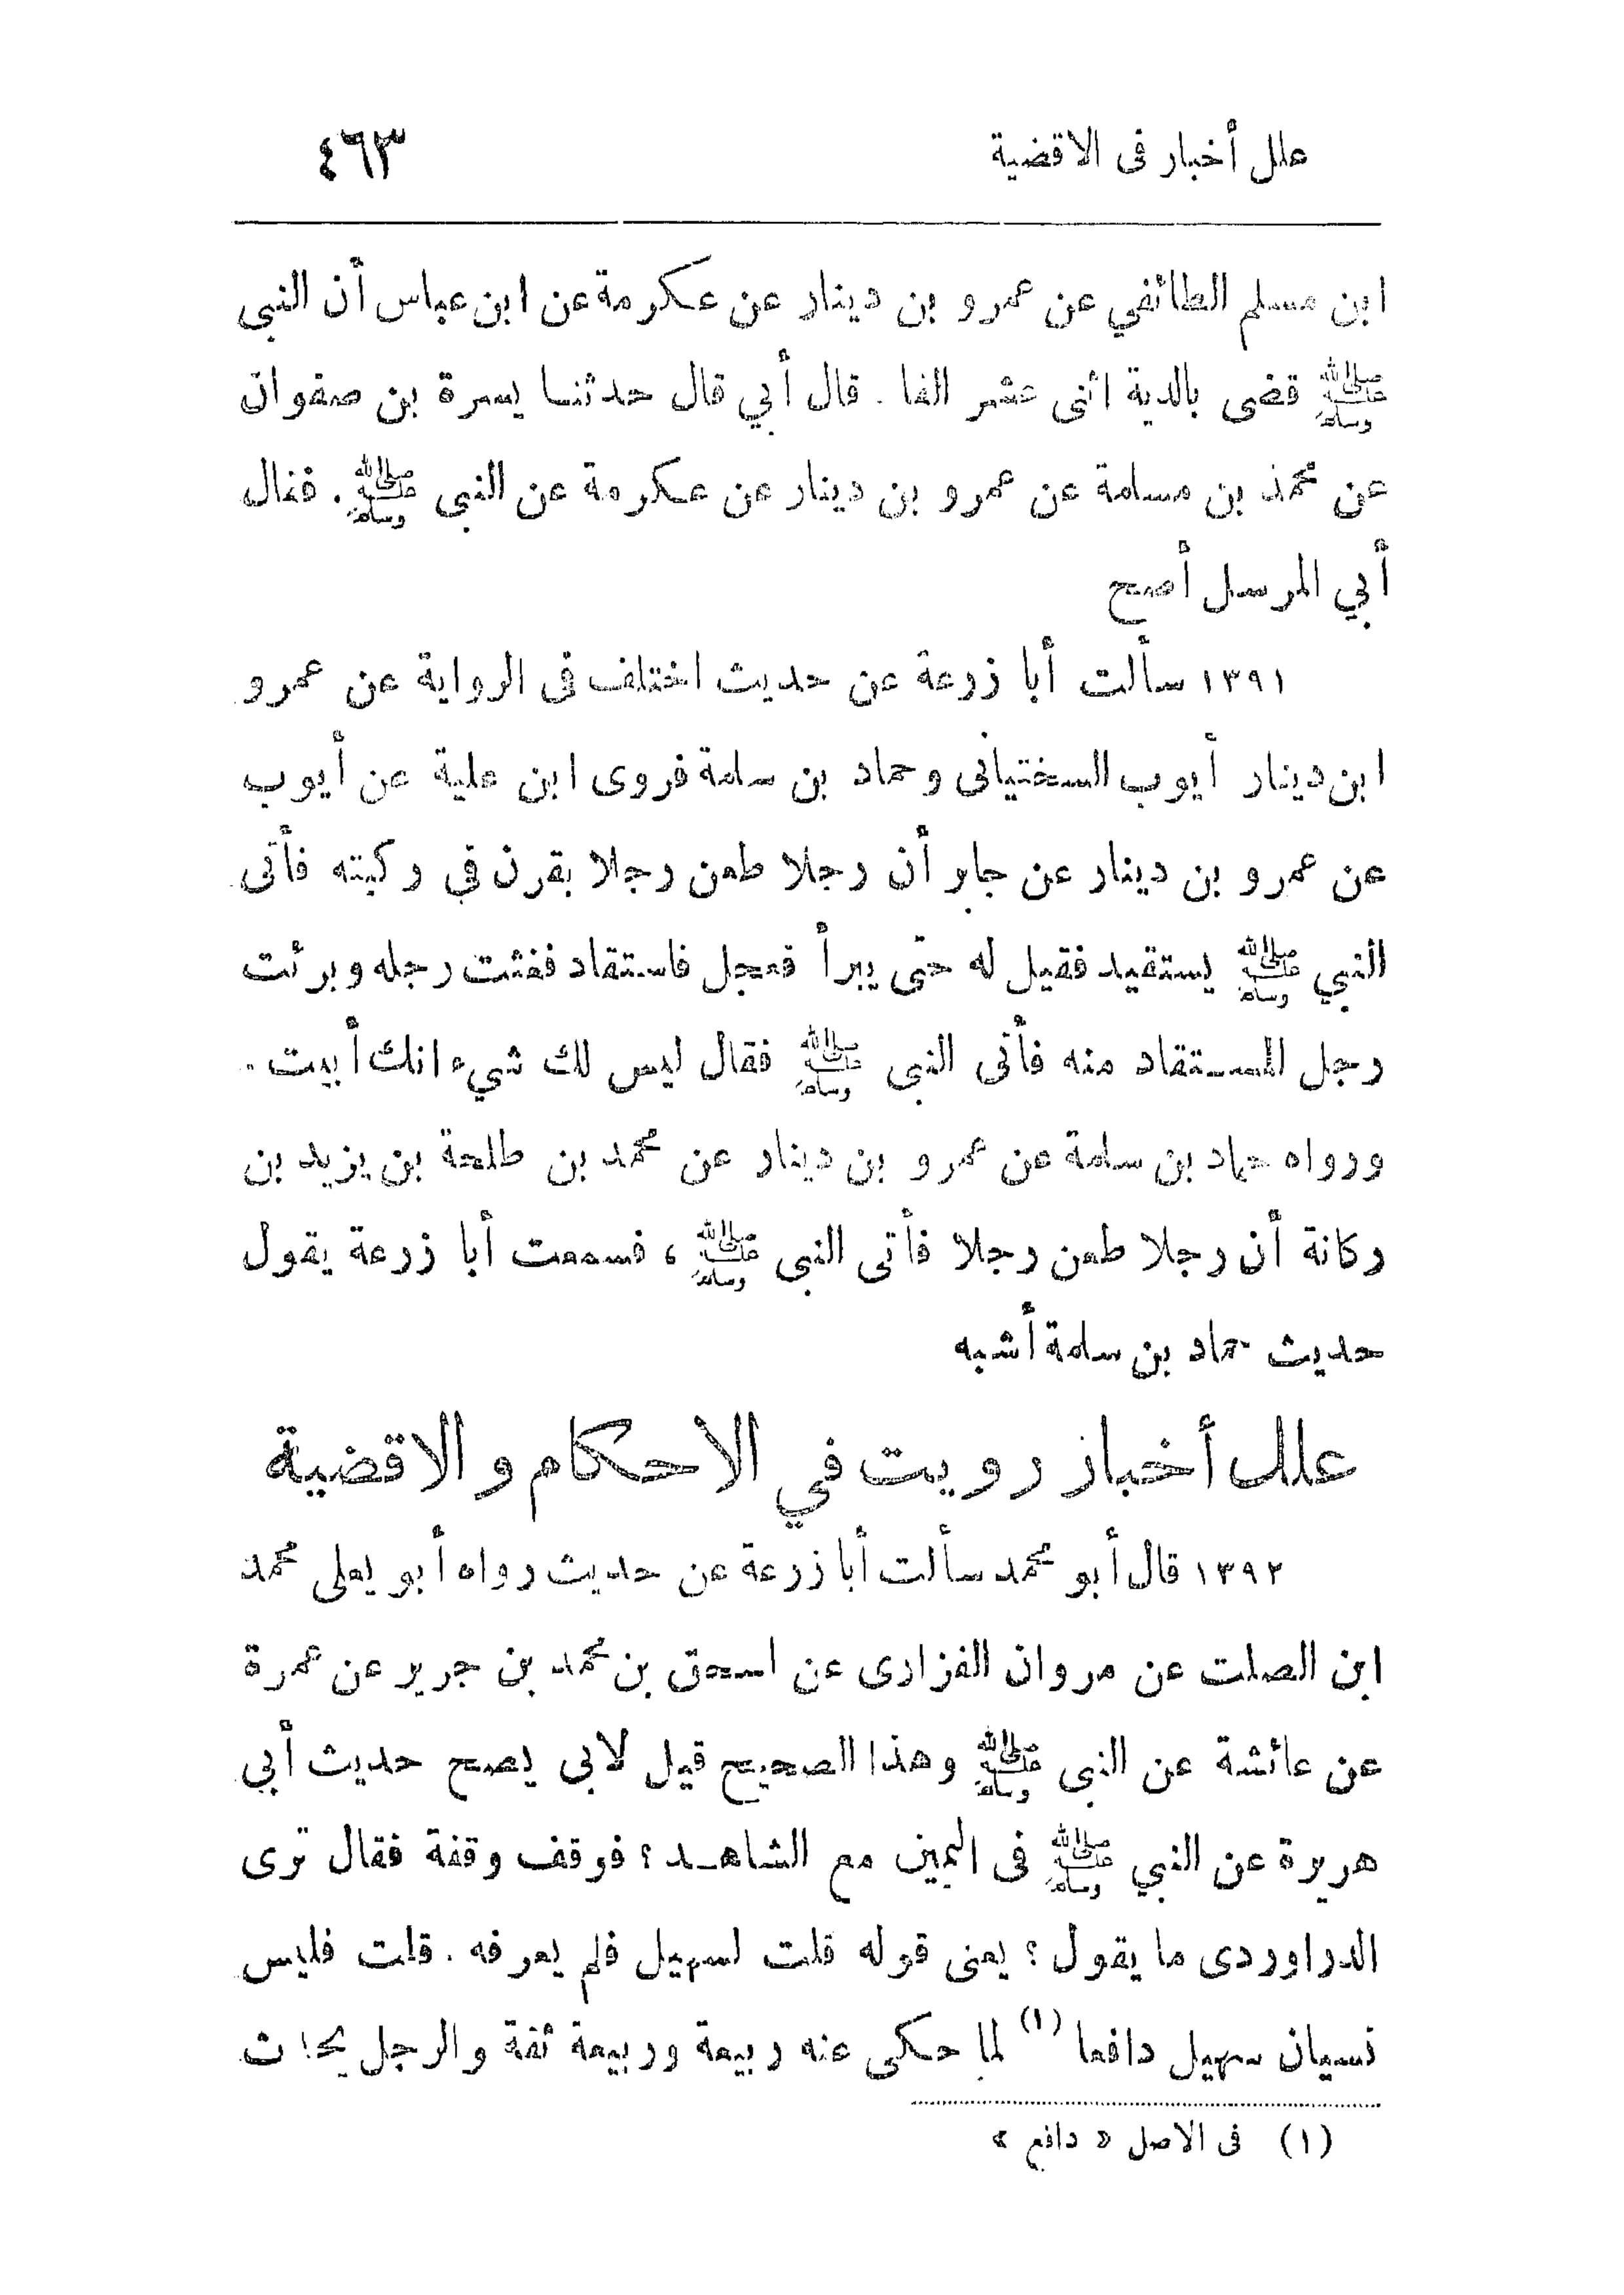 علل أخبار فى الاقضية ٤٦٣
ابن مسلم الطائفي عن عمرو بن دينار عن عكرمة عن ابن عباس أن النبى
ﷺ قضى بالدية اثنى عشر الفا . قال أبي قال حدثنا يسرة بن صفوان
عن محمد بن مسلمة عن عمرو بن دينار عن عكرمة عن النبى ﷺ . فقال
أبي المرسل أصح
١٣٩١ سألت أبا زرعة عن حديث اختلف فى الرواية عن عمرو
ابن دينار أيوب السختيانى وحماد بن سلمة فروى ابن علية عن أيوب
عن عمرو بن دينار عن جابر أن رجلا طعن رجلا بقرن في ركبته فأتى
النبي ﷺ يستقيد فقيل له حتى يبرأ فعجل فاستقاد فعثت رجله وبرئت
رجل المستقاد منه فأتى النبى ﷺ فقال ليس لك شيء انك أبيت .
ورواه حماد بن سلمة عن عمرو بن دينار عن محمد بن طلحة بن يزيد بن
ركانة أن رجلا طعن رجلا فأتى النبى ﷺ ، فسمعت أبا زرعة يقول
حديث حماد بن سلمة أشبه
علل أخبار رويت في الاحكام والاقضية
١٣٩٢ قال أبو محمد سألت أبا زرعة عن حديث رواه أبو يعلى محمد
ابن الصلت عن مروان الفزارى عن اسحق بن محمد بن جرير عن عمرة
عن عائشة عن النبى ﷺ وهذا الصحيح قيل لابى يصح حديث أبي
هريرة عن النبي ﷺ فى اليمين مع الشاهد ؟ فوقف وقفة فقال ترى
الدراوردى ما يقول ؟ يعنى قوله قلت لسهيل فلم يعرفه . قلت فليس
نسيان سهيل دافعا (١) لما حكى عنه ربيعة وربيعة ثقة والرجل يحدث
(١) فى الاصل « دافع »